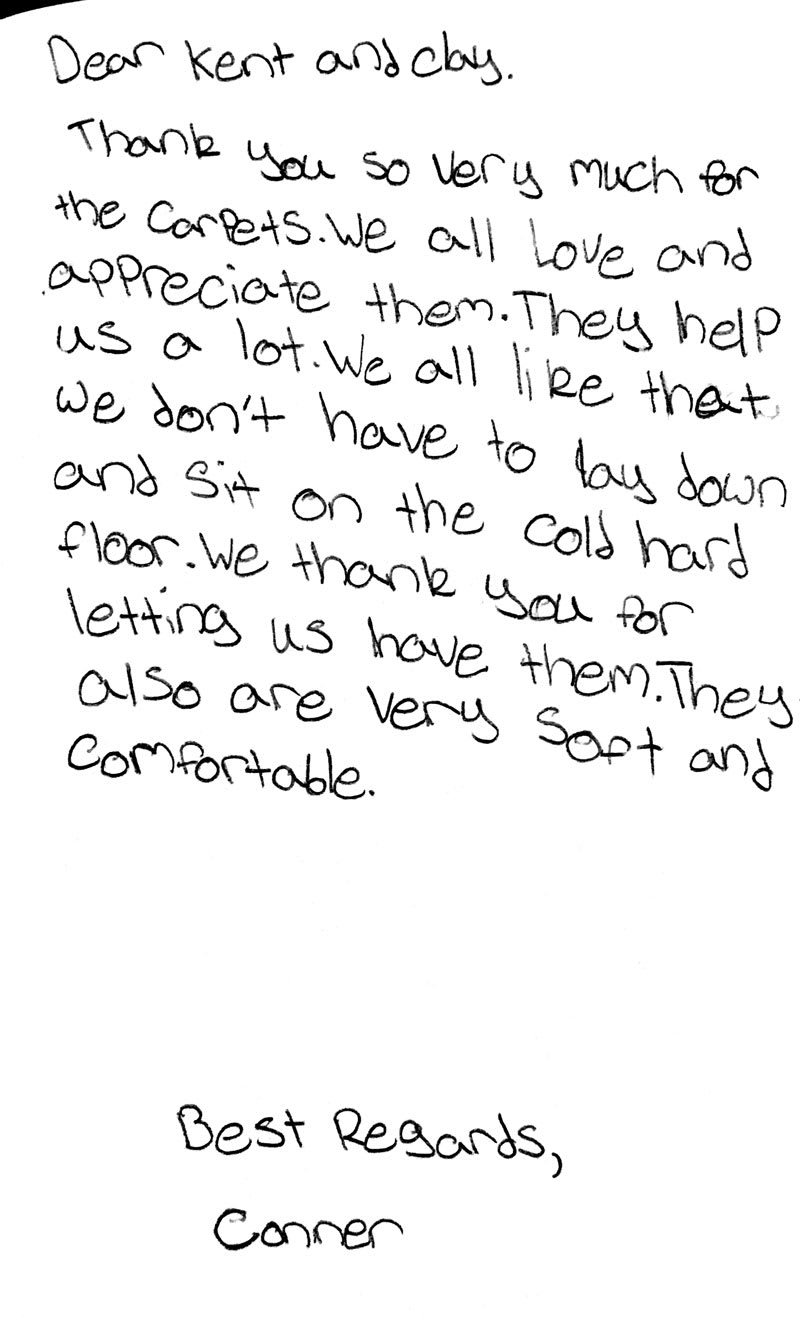 Dear Kent and clay.
Thank you so very much for
the carpets. We all Love and
appreciate them. They help
us a lot. We all like that
we don't have to lay down
and sit on the cold hard
floor. We thank you for
letting us have them. They
also are very soft and
comfortable.
Best Regards,
Conner